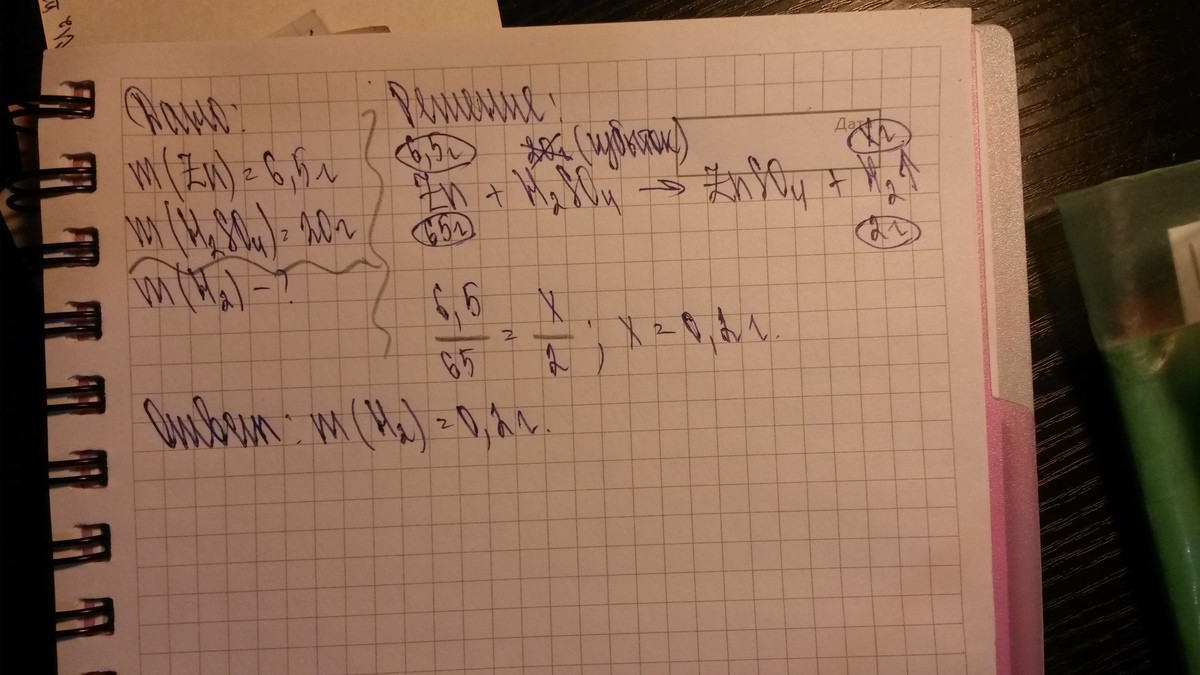 Дано:
m(Zn) = 6,5г
m(H₂SO₄) = 20г
m(H₂) - ?
Решение:
Дат
6,5г 20г (избыток) xг
Zn + H₂SO₄ → ZnSO₄ + H₂↑
65г 2г
6,5/65 = x/2 ; x = 0,2г.
Ответ: m(H₂) = 0,2г.